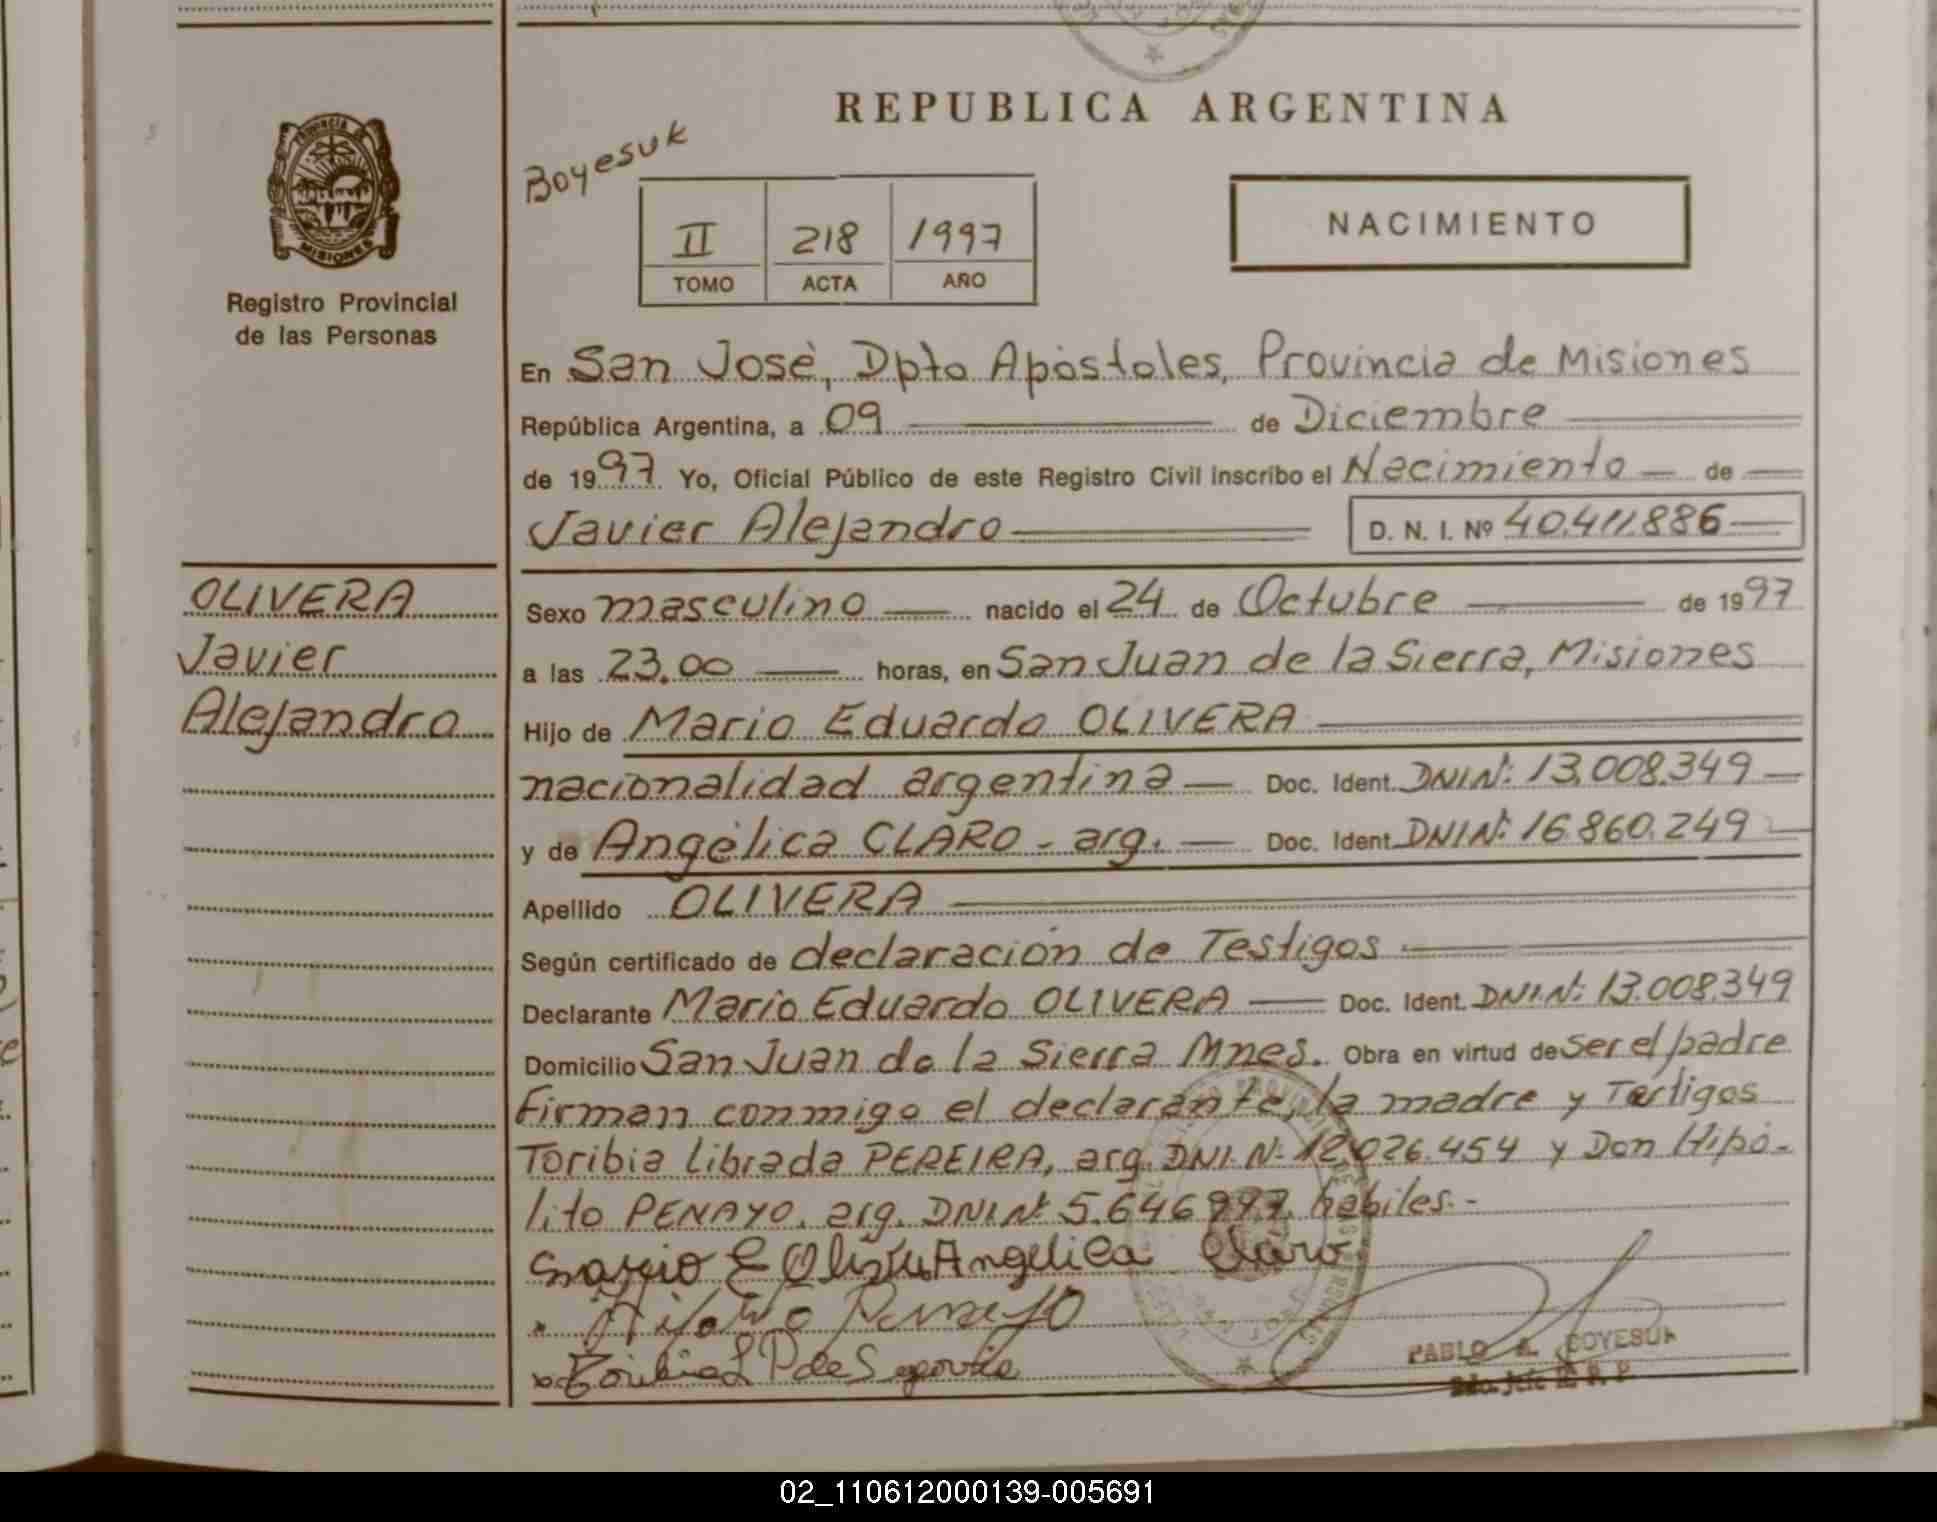 REPUBLICA ARGENTINA
Boyesuk
PROVINCIA DE
MISIONES
Registro Provincial
de las Personas
II 218 1997
TOMO ACTA AÑO
NACIMIENTO
En San José, Dpto Apóstoles, Provincia de Misiones
República Argentina, a 09 de Diciembre
de 1997 Yo, Oficial Público de este Registro Civil inscribo el Nacimiento de
Javier Alejandro D. N. I. Nº 40.411.886
OLIVERA
Javier
Alejandro
Sexo masculino nacido el 24 de Octubre de 1997
a las 23.00 horas, en San Juan de la Sierra, Misiones
Hijo de Mario Eduardo OLIVERA
nacionalidad argentina Doc. Ident. DNI Nº: 13.008.349
y de Angélica CLARO - arg. Doc. Ident. DNI Nº: 16.860.249
Apellido OLIVERA
Según certificado de declaración de Testigos
Declarante Mario Eduardo OLIVERA Doc. Ident. DNI Nº: 13.008.349
Domicilio San Juan de la Sierra Mnes. Obra en virtud de ser el padre
Firman conmigo el declarante, la madre y Testigos
Toribia Librada PEREIRA, arg. DNI Nº 12.026.454 y Don Hipó-
lito PENAYO, arg. DNI Nº 5.646.997 habiles.-
E Angelica Claro
Penayo
Toribia L P de Segovia
PABLO A. BOYESUK
02_110612000139-005691